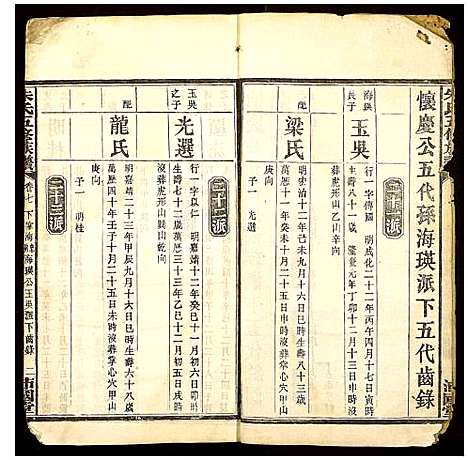 懷慶公五代孫海瑛派下五代齒錄
二十二派
海瑛長子
玉吳
行一字傳國 明成化二十二年丙午四月十七日寅時
生壽八十一歲 隆慶元年丁卯十二月十三日申時沒
葬虎形山乙山辛向
配
梁氏
明弘治十二年己未九月十六日巳時生壽八十三歲
萬曆十一年癸未十月二十一日未時沒葬掌心穴甲山
庚向
子一 光選
二十三派
玉吳之子
光選
行一字以仁 明嘉靖十二年癸巳十一月初六日
生壽七十二歲萬曆三十三年乙巳十二月初五日戌時
沒葬虎形山巽山乾向
配
龍氏
明嘉靖二十三年甲辰九月十六日巳時生壽六十八歲
萬曆四十年二月二十五日未時沒葬掌心穴甲山
庚向
子一 明桂
朱氏五修族譜
卷七
二